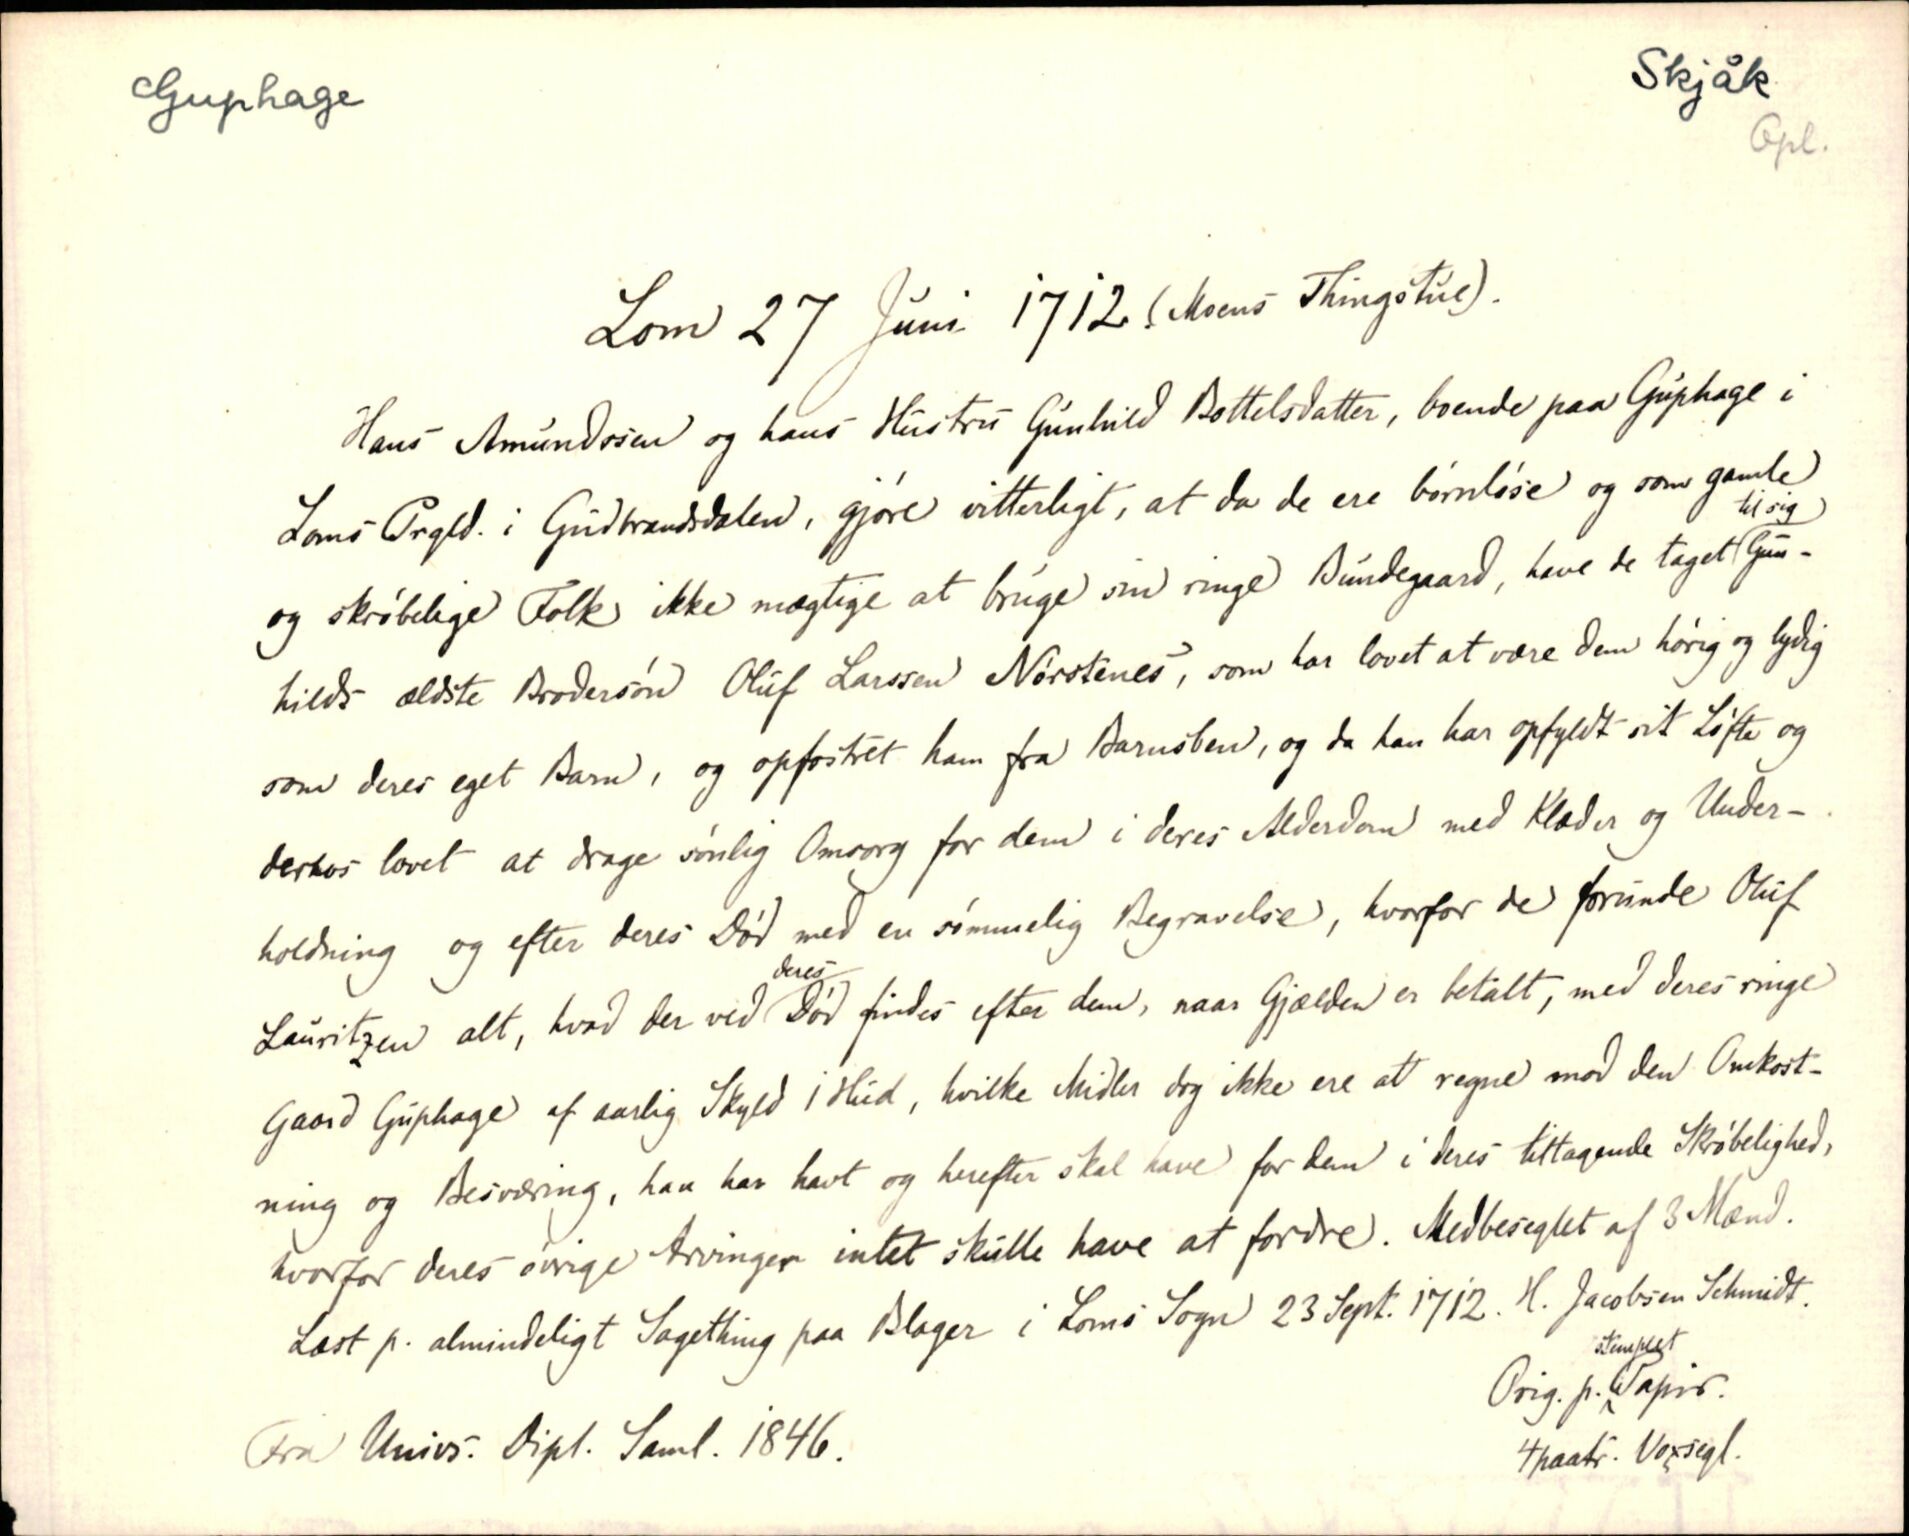 Guphage
Skjåk
Opl.
Lom 27 Juni 1712 (Moens Thingstue).
Hans Amundssen og hans Hustru Gunhild Bottelsdatter, boende paa Guphage i
Loms Prgld. i Gudbrandsdalen, gjöre vitterligt, at da de ere börnlöse og som gamle
og skröbelige Folk ikke mægtige at bruge sin ringe Bundegaard, have de taget til sig Gun-
hilds ældste Brodersön Oluf Larssen Nörstenes, som har lovet at være dem hörig og lydig
som deres eget Barn, og opfostret ham fra Barnsben, og da han har opfyldt sit Löfte og
derhos lovet at drage sönlig Omsorg for dem i deres Alderdom med Klæder og Under-
holdning og efter deres Död med en sömmelig Begravelse, hvorfor de forunde Oluf
Lauritzen alt, hvad der ved deres Död findes efter dem, naar Gjælden er betalt, med deres ringe
Gaard Guphage af aarlig Skyld 1 Hud, hvilke Midler dog ikke ere at regne mod den Omkost-
ning og Besværing, han har havt og herefter skal have for dem i deres tiltagende Skröbelighed,
hvorfor deres övrige Arvinger intet skulle have at fordre. Medbeseglet af 3 Mænd.
Læst p. almindeligt Sagething paa Blager i Loms Sogn 23 Sept. 1712. H. Jacobsen Schmidt.
Orig. p. stemplet Papir.
4 paatr. Voxsegl.
Fra Univs. Dipl. Saml. 1846.